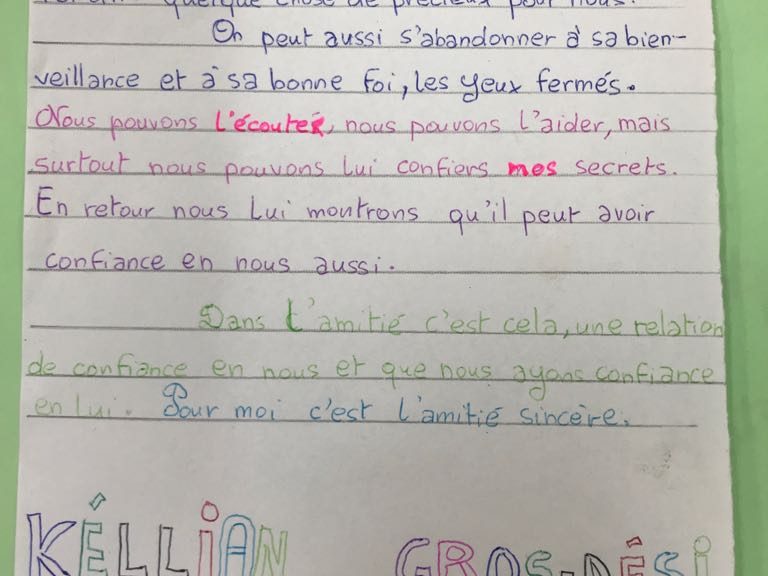 quelque chose de précieux pour nous.
On peut aussi s'abandonner à sa bien-
veillance et à sa bonne foi, les yeux fermés.
Nous pouvons l'écouter, nous pouvons l'aider, mais
surtout nous pouvons lui confiers mes secrets.
En retour nous lui montrons qu'il peut avoir
confiance en nous aussi.
Dans l'amitié c'est cela, une relation
de confiance en nous et que nous ayons confiance
en lui. Pour moi c'est l'amitié sincère.
KÉLLIAN GROS-DÉSi